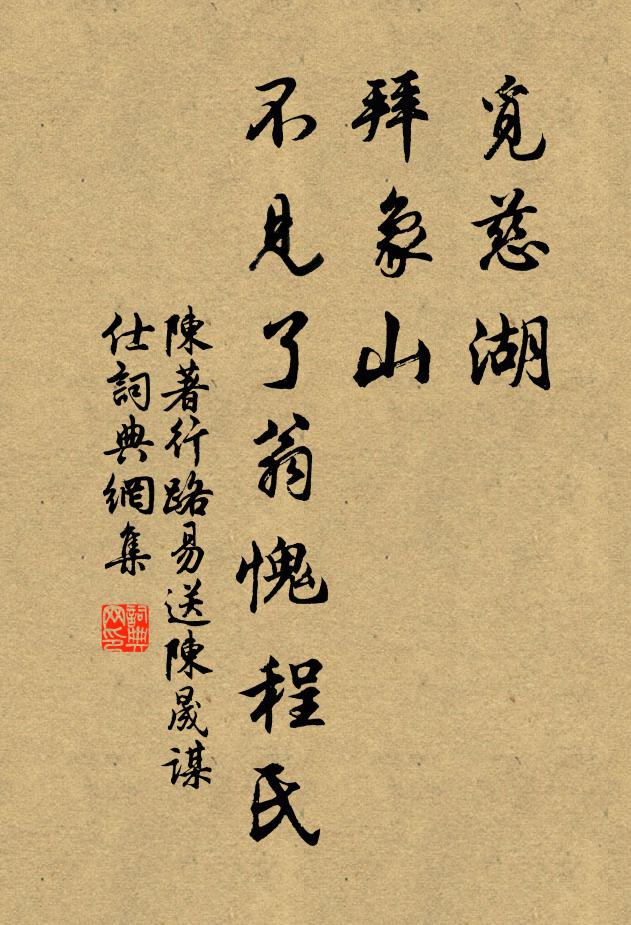 覓慈湖
拜象山
不見了翁愧程氏
陳著行路易送陳晟謀
仕詞典網集
詞典
网印